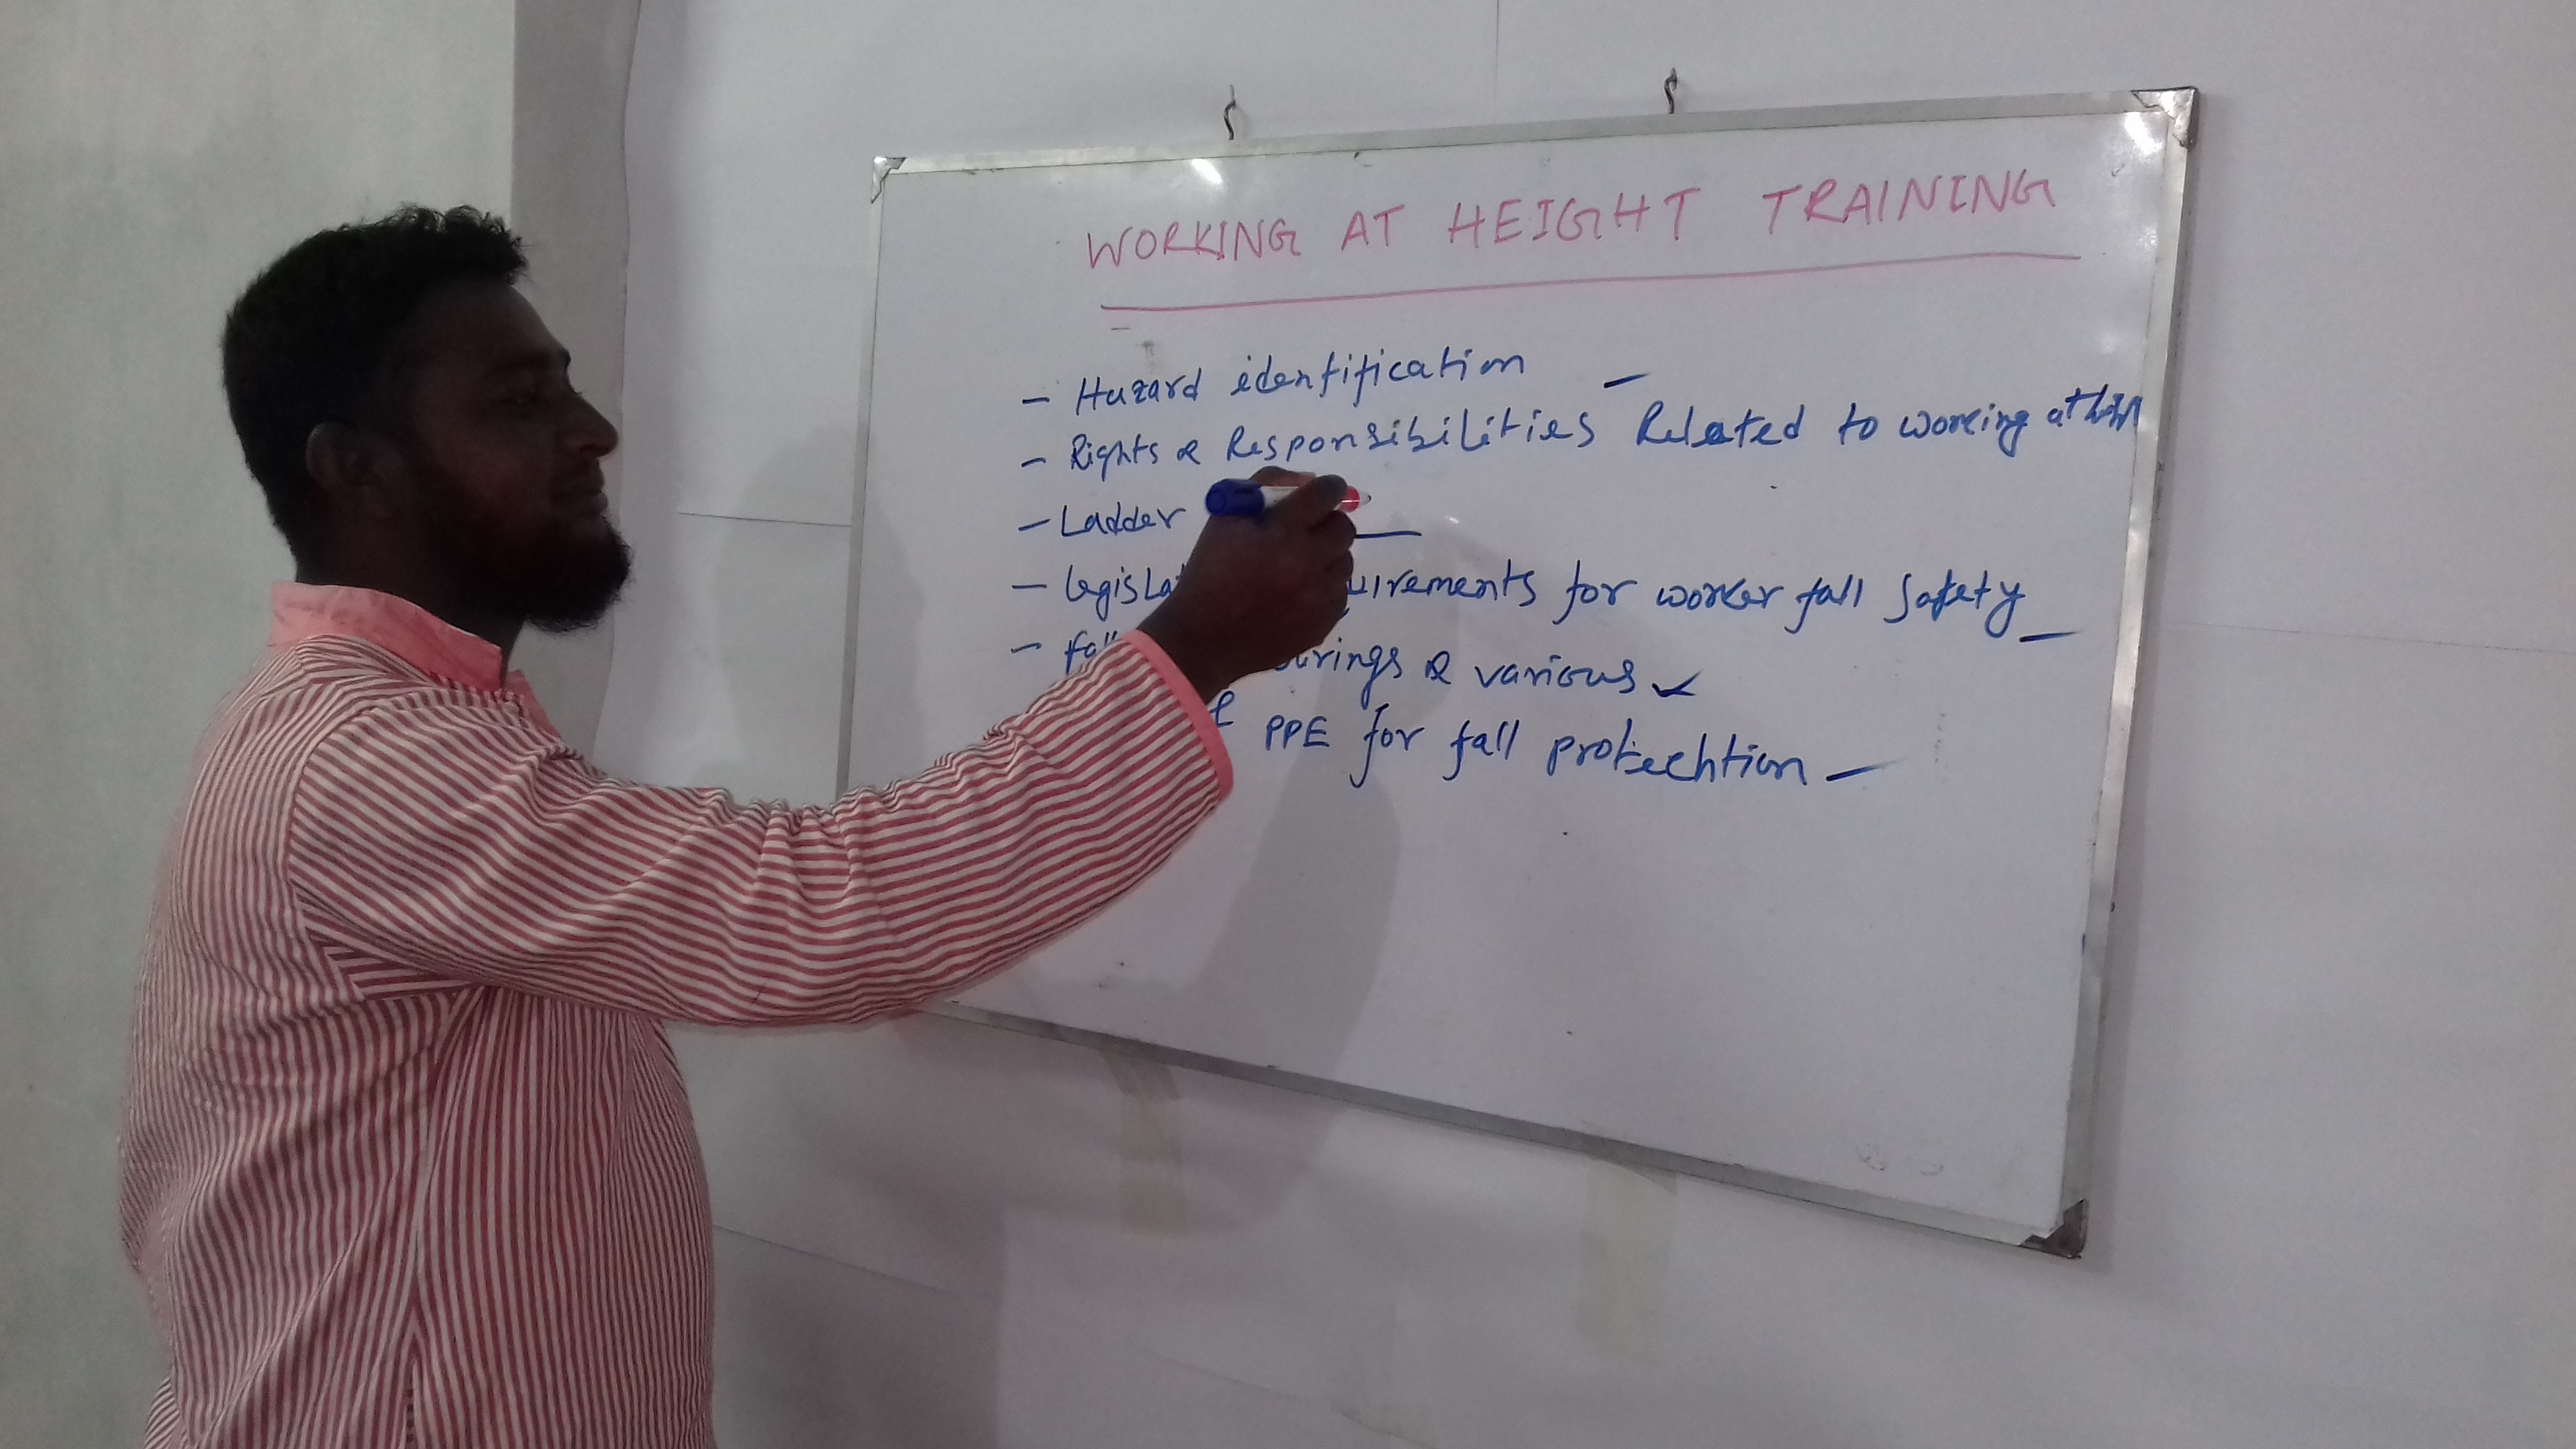 WORKING AT HEIGHT TRAINING
- Hazard identification -
- Rights & Responsibilities Related to working at
- Ladder
- requirements for worker fall safety -
- & various
PPE for fall protechtion -